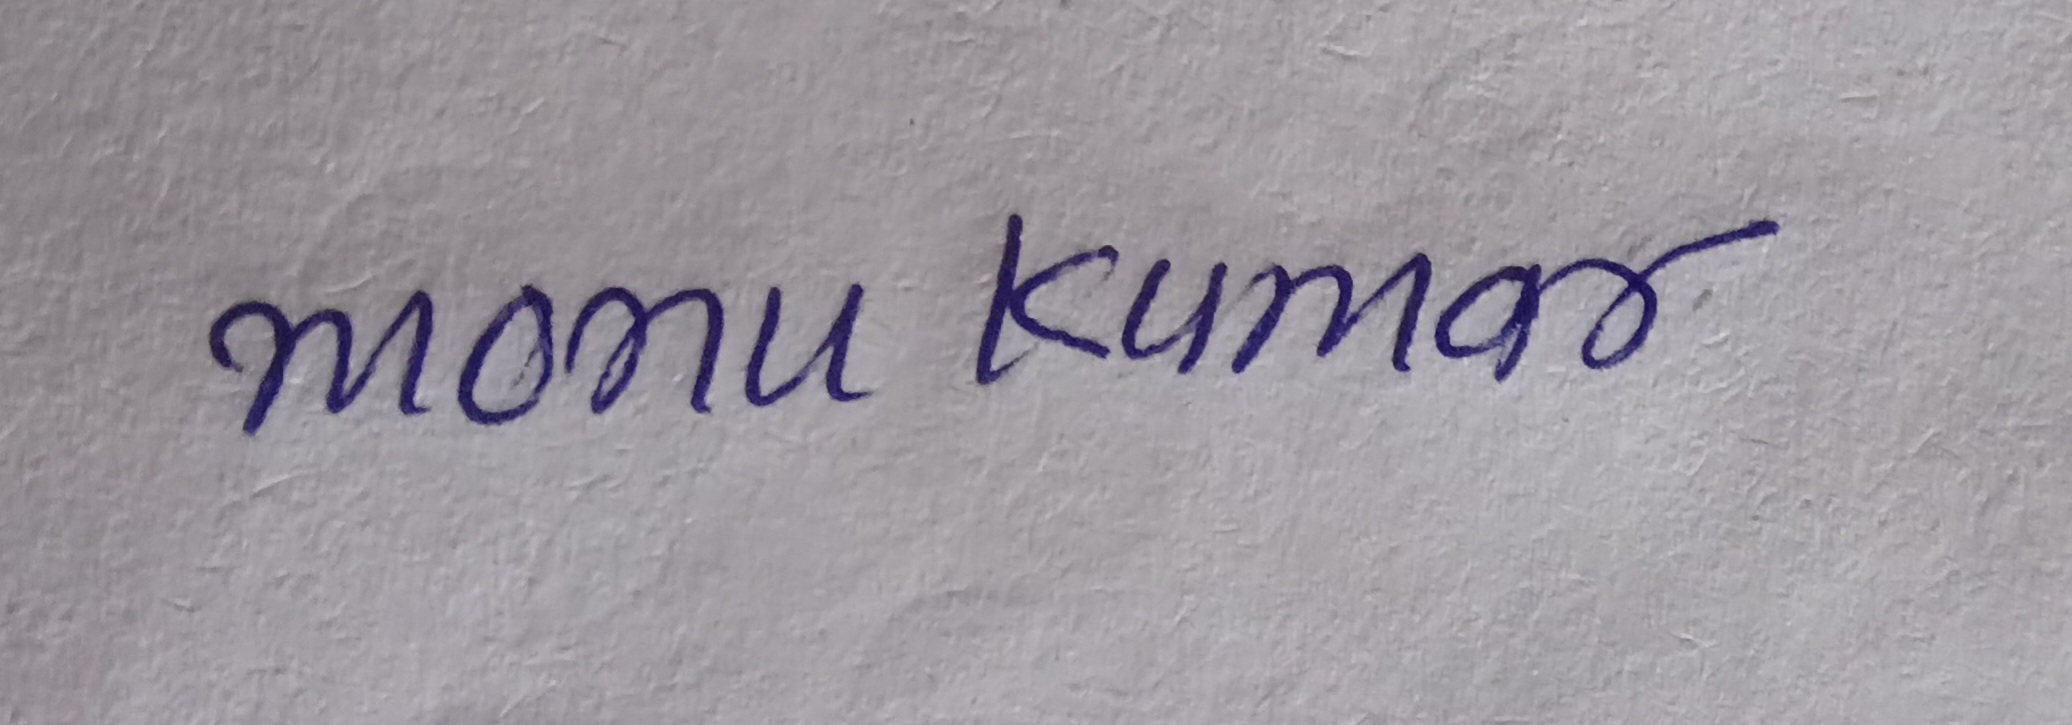 monu Kumar